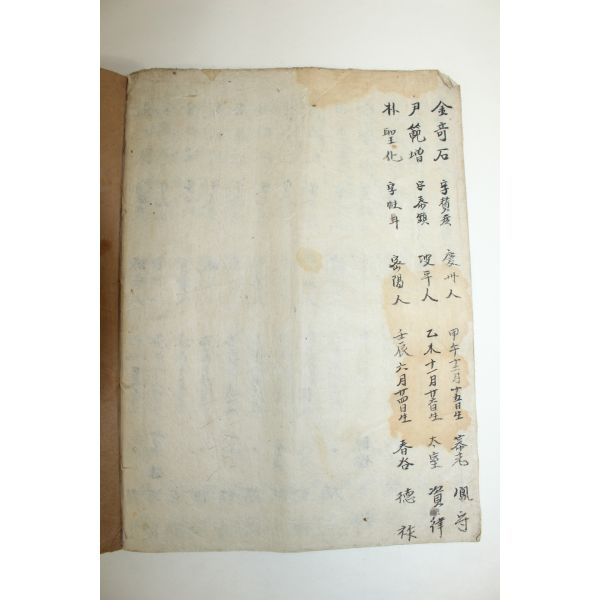 金奇石 字贊彦 慶州人 甲午十二月十五日生 鳳
尹範增 字泰鎮 坡平人 乙未十一月廿六日生 太室 資
朴聖化 字 密陽人 壬辰六月廿四日生 春谷 德祿